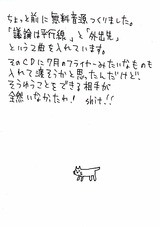 ちょっと前に無料音源つくりました。
「議論は平行線」と「外出先」
という2曲を入れています。
そのCDに7月のフライヤーみたいなものも
入れて渡そうかと思ったんだけど、
そうゆうことをできる相手が
全然いなかったわ! shit!!